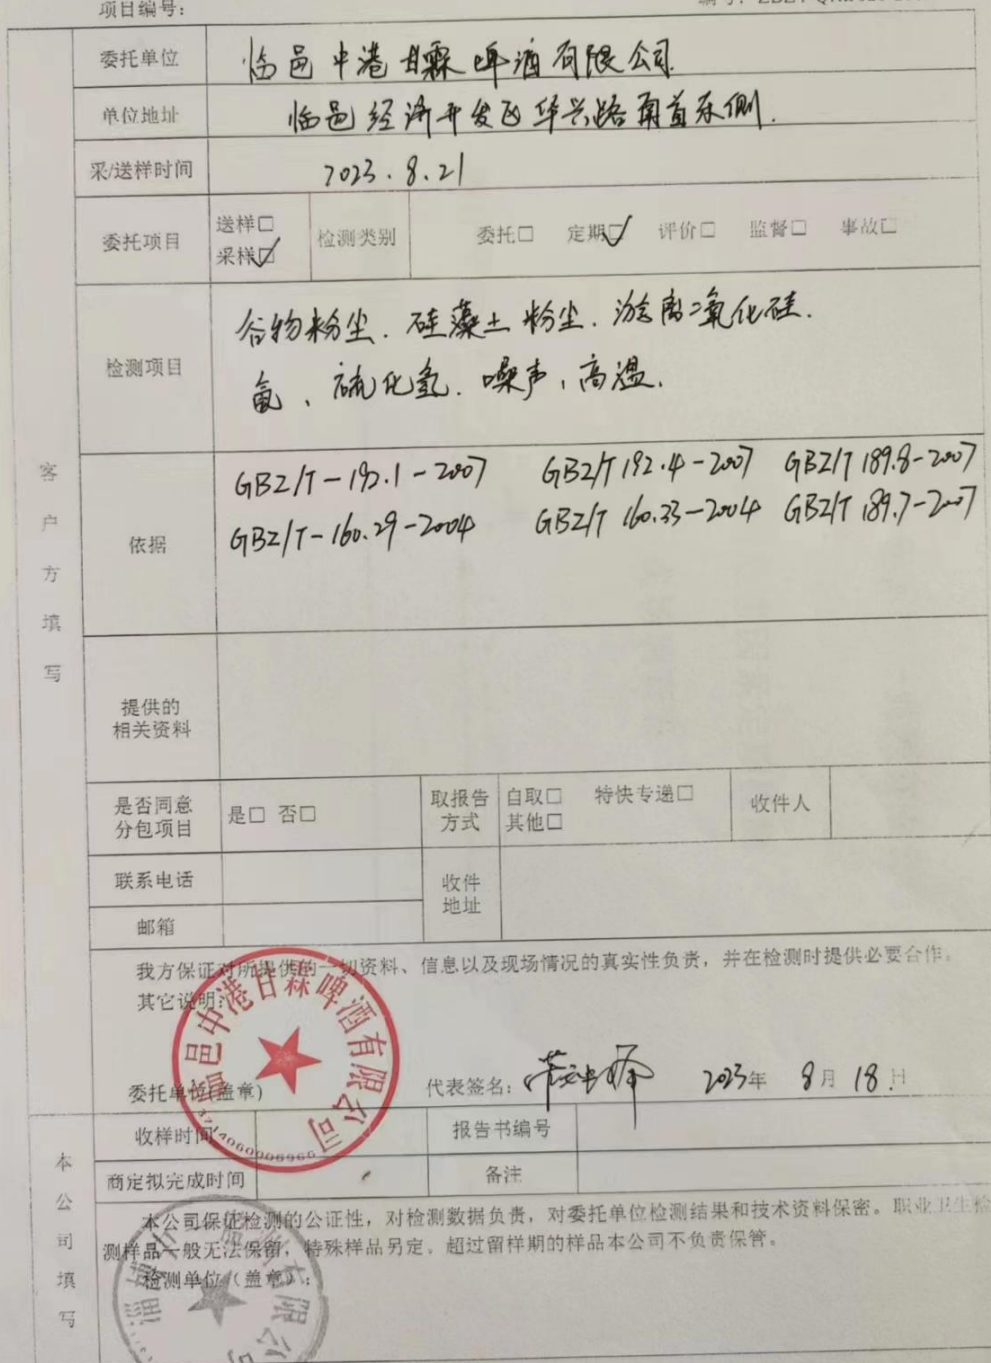 项目编号：
委托单位 临邑中港甘霖啤酒有限公司
单位地址 临邑经济开发区华兴路南首东侧.
采/送样时间 2023.8.21
委托项目 送样□ 采样☑ 检测类别 委托□ 定期☑ 评价□ 监督□ 事故□
检测项目 谷物粉尘、硅藻土粉尘、游离二氧化硅.
氨、硫化氢、噪声、高温.
客户方填写
依据 GBZ/T-192.1-2007 GBZ/T 192.4-2007 GBZ/T 189.8-2007
GBZ/T-160.29-2004 GBZ/T 160.33-2004 GBZ/T 189.7-2007
提供的
相关资料
是否同意
分包项目 是□ 否□ 取报告
方式 自取□ 特快专递□
其他□ 收件人
联系电话 收件
地址
邮箱
我方保证对所提供的一切资料、信息以及现场情况的真实性负责，并在检测时提供必要合作。
其它说明：
委托单位(盖章) 代表签名： 2023年 8月 18日
邑中港甘霖啤酒有限公司
收样时间 报告书编号
商定拟完成时间 备注
本公司填写
本公司保证检测的公证性，对检测数据负责，对委托单位检测结果和技术资料保密。职业卫生检
测样品一般无法保留，特殊样品另定。超过留样期的样品本公司不负责保管。
检测单位（盖章）：